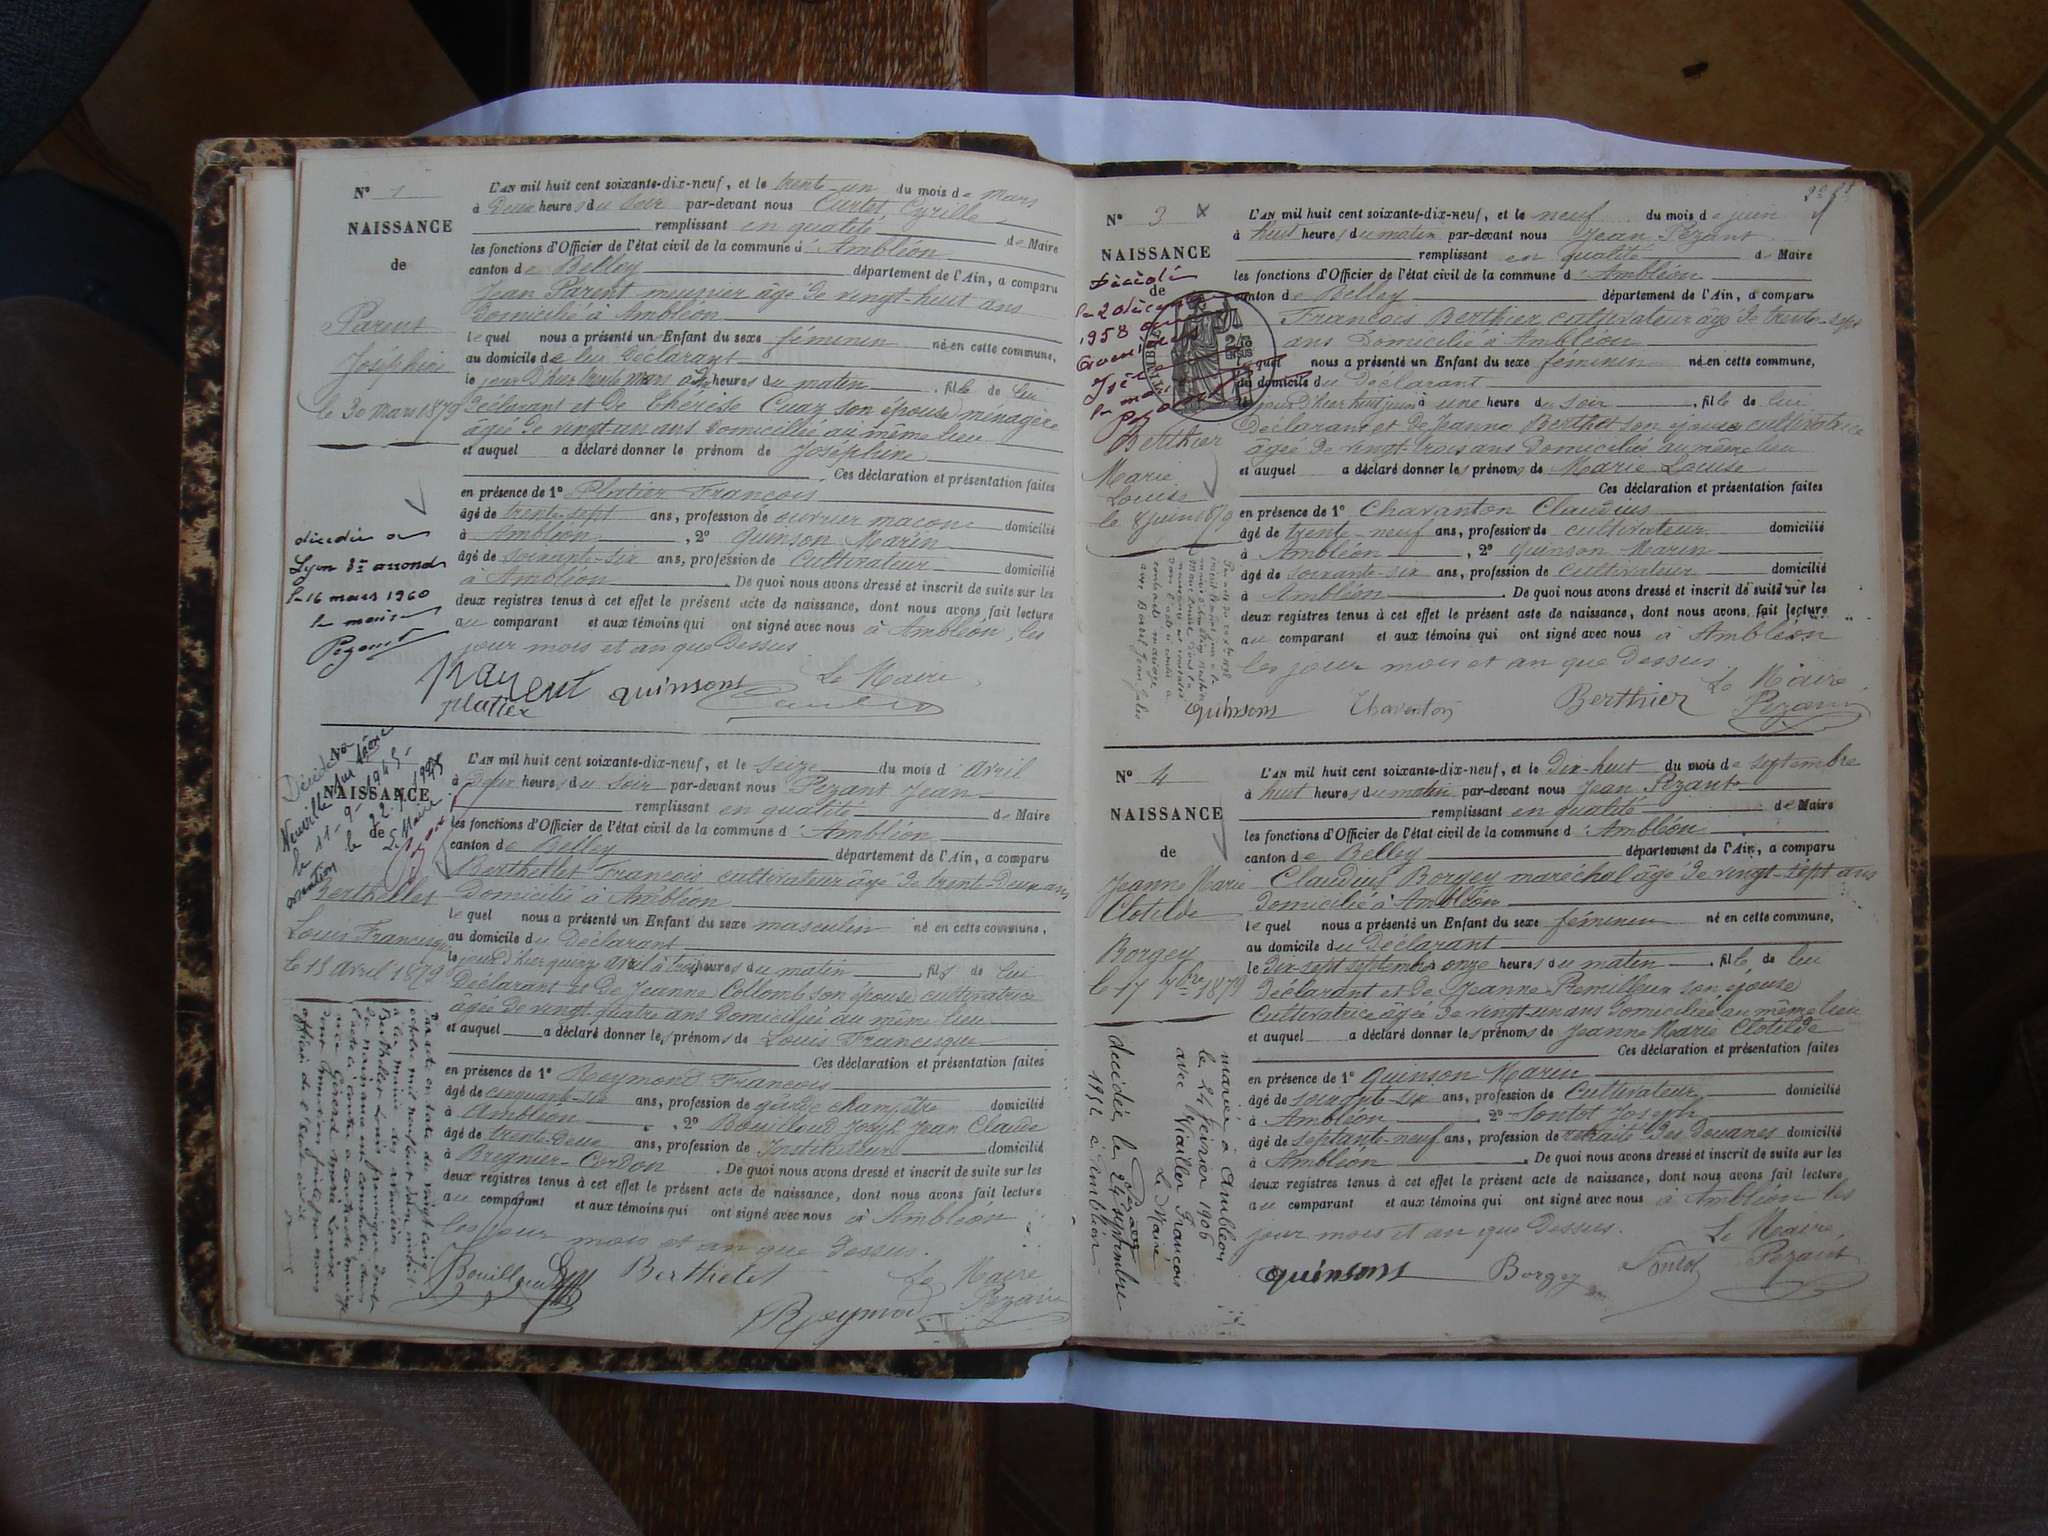 N° 1
NAISSANCE
de
Parent
Joséphine
le 30 mars 1879
décédée
Lyon 3e arrond
le 16 mars 1960
le maire
Pezant
L'AN mil huit cent soixante-dix-neuf, et le trente-un du mois de Mars
à Deux heures du soir par-devant nous Curtet Cyrille
remplissant en qualité de Maire
les fonctions d'Officier de l'état civil de la commune d'Ambléon
canton de Belley département de l'Ain, a comparu
Jean Parent meunier âgé de vingt-huit ans
Domicilié à Ambléon
lequel nous a présenté un Enfant du sexe féminin né en cette commune,
au domicile de lui Déclarant
le jour d'hier trente mars à heures du matin, fille de lui
Déclarant et de Thérèse Cuaz son épouse ménagère
âgée de vingt un ans Domiciliée au même lieu
et auquel a déclaré donner le prénom de Joséphine
Ces déclaration et présentation faites
en présence de 1° Platier François
âgé de trente-sept ans, profession de ouvrier maçon domicilié
à Ambléon, 2° Quinson Marin
âgé de soixante-six ans, profession de Cultivateur domicilié
à Ambléon. De quoi nous avons dressé et inscrit de suite sur les
deux registres tenus à cet effet le présent acte de naissance, dont nous avons fait lecture
au comparant et aux témoins qui ont signé avec nous à Ambléon, les
jour mois et an que Dessus
Parent quinsons Le Maire
Platier
NAISSANCE
de
Décédé à
Neuville sur Saône
le 11-9-1945
Le Maire
Berthellet
Louis Francisque
le 15 Avril 1879
L'AN mil huit cent soixante-dix-neuf, et le seize du mois d'Avril
à Deux heures du soir par-devant nous Pezant Jean
remplissant en qualité de Maire
les fonctions d'Officier de l'état civil de la commune d'Ambléon
canton de Belley département de l'Ain, a comparu
Berthellet François cultivateur âgé de trente-Deux ans
Domicilié à Ambléon
lequel nous a présenté un Enfant du sexe masculin né en cette commune,
au domicile du Déclarant
le jour d'hier quinze avril à trois heures du matin, fils de lui
Déclarant et de Jeanne Collomb son épouse cultivatrice
âgée de vingt quatre ans Domiciliée au même lieu
et auquel a déclaré donner les prénoms de Louis Francisque
Ces déclaration et présentation faites
en présence de 1° Reymond François
âgé de cinquante-six ans, profession de garde champêtre domicilié
à Ambléon, 2° Bouilloud Joseph Jean Claude
âgé de trente-Deux ans, profession de Instituteur domicilié
à Brégnier-Cordon. De quoi nous avons dressé et inscrit de suite sur les
deux registres tenus à cet effet le présent acte de naissance, dont nous avons fait lecture
au comparant et aux témoins qui ont signé avec nous à Ambléon
les jour mois et an que Dessus.
Bouilloud Berthelet Le Maire
Reymond Pezant
N° 3
NAISSANCE
de
Décédée
le 2 décembre
1958
Berthier
Marie
Louise
le 8 juin 1879
TIMBRE
L'AN mil huit cent soixante-dix-neuf, et le neuf du mois de juin
à huit heures du matin par-devant nous Jean Pezant
remplissant en qualité de Maire
les fonctions d'Officier de l'état civil de la commune d'Ambléon
canton de Belley département de l'Ain, a comparu
François Berthier cultivateur âgé de trente-sept
ans Domicilié à Ambléon
lequel nous a présenté un Enfant du sexe féminin né en cette commune,
au domicile du Déclarant
le jour d'hier huit juin à une heure du soir, fille de lui
Déclarant et de Jeanne Berthet son épouse cultivatrice
âgée de vingt-trois ans Domiciliée au même lieu
et auquel a déclaré donner les prénoms de Marie Louise
Ces déclaration et présentation faites
en présence de 1° Chavanton Claudius
âgé de trente-neuf ans, profession de cultivateur domicilié
à Ambléon, 2° Quinson Marin
âgé de soixante-six ans, profession de cultivateur domicilié
à Ambléon. De quoi nous avons dressé et inscrit de suite sur les
deux registres tenus à cet effet le présent acte de naissance, dont nous avons fait lecture
au comparant et aux témoins qui ont signé avec nous à Ambléon
les jour mois et an que Dessus.
quinsons Chavanton Berthier Le Maire
Pezant
N° 4
NAISSANCE
de
Jeanne Marie
Clotilde
Borgey
le 17 7bre 1879
mariée à Ambléon
le 24 février 1906
avec Viallet François
Le Maire
Pezant
décédée le 24 septembre
1952 à Ambléon
L'AN mil huit cent soixante-dix-neuf, et le Dix-huit du mois de septembre
à huit heures du matin par-devant nous Jean Pezant
remplissant en qualité de Maire
les fonctions d'Officier de l'état civil de la commune d'Ambléon
canton de Belley département de l'Ain, a comparu
Claudius Borgey maréchal âgé de vingt-sept ans
Domicilié à Ambléon
lequel nous a présenté un Enfant du sexe féminin né en cette commune,
au domicile du Déclarant
le Dix-sept septembre onze heures du matin, fille de lui
Déclarant et de Jeanne Remilleux son épouse
Cultivatrice âgée de vingt-un ans Domiciliée au même lieu
et auquel a déclaré donner les prénoms de Jeanne Marie Clotilde
Ces déclaration et présentation faites
en présence de 1° Quinson Marin
âgé de soixante-six ans, profession de Cultivateur domicilié
à Ambléon, 2° Joseph
âgé de septante-neuf ans, profession de retraité des Douanes domicilié
à Ambléon. De quoi nous avons dressé et inscrit de suite sur les
deux registres tenus à cet effet le présent acte de naissance, dont nous avons fait lecture
au comparant et aux témoins qui ont signé avec nous à Ambléon les
jour mois et an que Dessus. Le Maire
quinsons Borgey Pezant